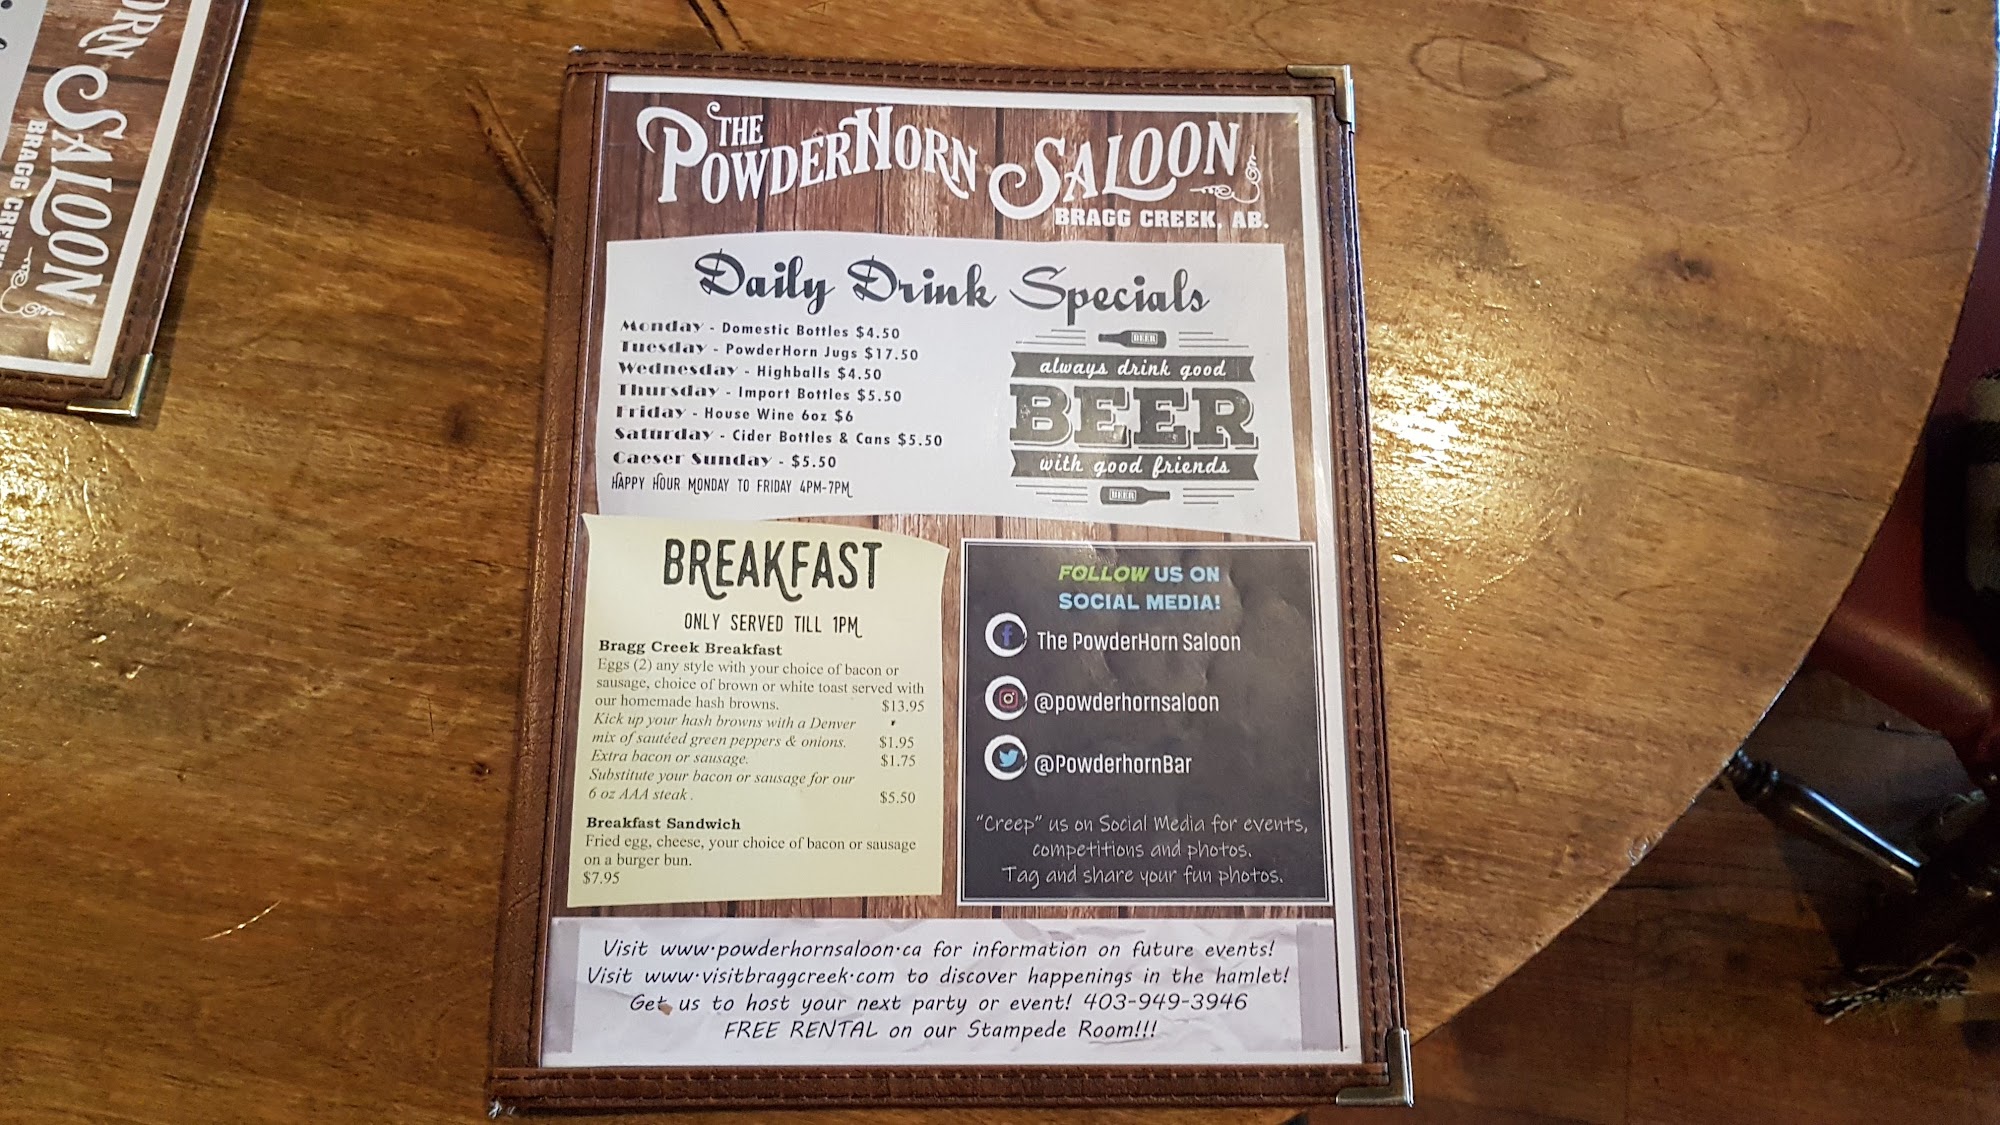 ORN SALOON
BRAGG CREEK
THE
POWDERHORN SALOON
BRAGG CREEK, AB.
Daily Drink Specials
Monday - Domestic Bottles $4.50
Tuesday - PowderHorn Jugs $17.50
Wednesday - Highballs $4.50
Thursday - Import Bottles $5.50
Friday - House Wine 6oz $6
Saturday - Cider Bottles & Cans $5.50
Caeser Sunday - $5.50
HAPPY HOUR MONDAY TO FRIDAY 4PM-7PM
BEER
always drink good
BEER
with good friends
BEER
BREAKFAST
ONLY SERVED TILL 1PM
Bragg Creek Breakfast
Eggs (2) any style with your choice of bacon or
sausage, choice of brown or white toast served with
our homemade hash browns. $13.95
Kick up your hash browns with a Denver
mix of sautéed green peppers & onions. $1.95
Extra bacon or sausage. $1.75
Substitute your bacon or sausage for our
6 oz AAA steak. $5.50
Breakfast Sandwich
Fried egg, cheese, your choice of bacon or sausage
on a burger bun.
$7.95
FOLLOW US ON
SOCIAL MEDIA!
f The PowderHorn Saloon
@powderhornsaloon
@PowderhornBar
"Creep" us on Social Media for events,
competitions and photos.
Tag and share your fun photos.
Visit www.powderhornsaloon.ca for information on future events!
Visit www.visitbraggcreek.com to discover happenings in the hamlet!
Get us to host your next party or event! 403-949-3946
FREE RENTAL on our Stampede Room!!!